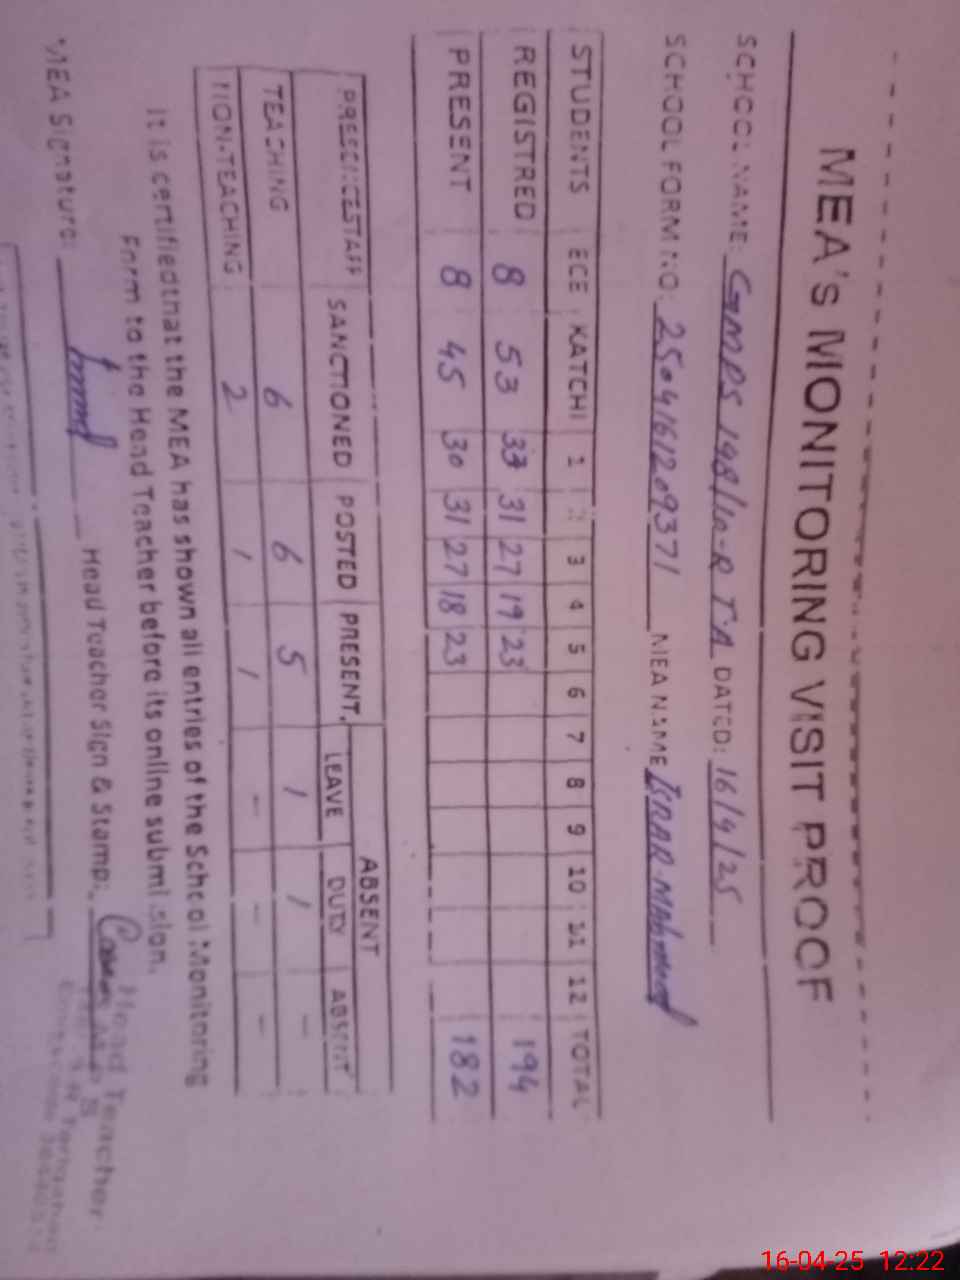 MEA's MONITORING VISIT PROOF
SCHOOL NAME: GMPS 198/10-R T.A DATED: 16/4/25
SCHOOL FORM NO: 2504161209371 MEA NAME ISRAR Mahmood
STUDENTS ECE KATCHI 1 2 3 4 5 6 7 8 9 10 11 12 TOTAL
REGISTRED 8 53 33 31 27 19 23 194
PRESENT 8 45 30 31 27 18 23 182
ABSENT
PRESENCE STAFF SANCTIONED POSTED PRESENT. LEAVE DUTY ABSENT
TEACHING 6 6 5 1 1 -
NON-TEACHING 2 1 1 - - -
It is certified that the MEA has shown all entries of the School Monitoring
Form to the Head Teacher before its online submission.
MEA Signature: Head Teacher Sign & Stamp:
Head Teacher
16-04-25 12:22